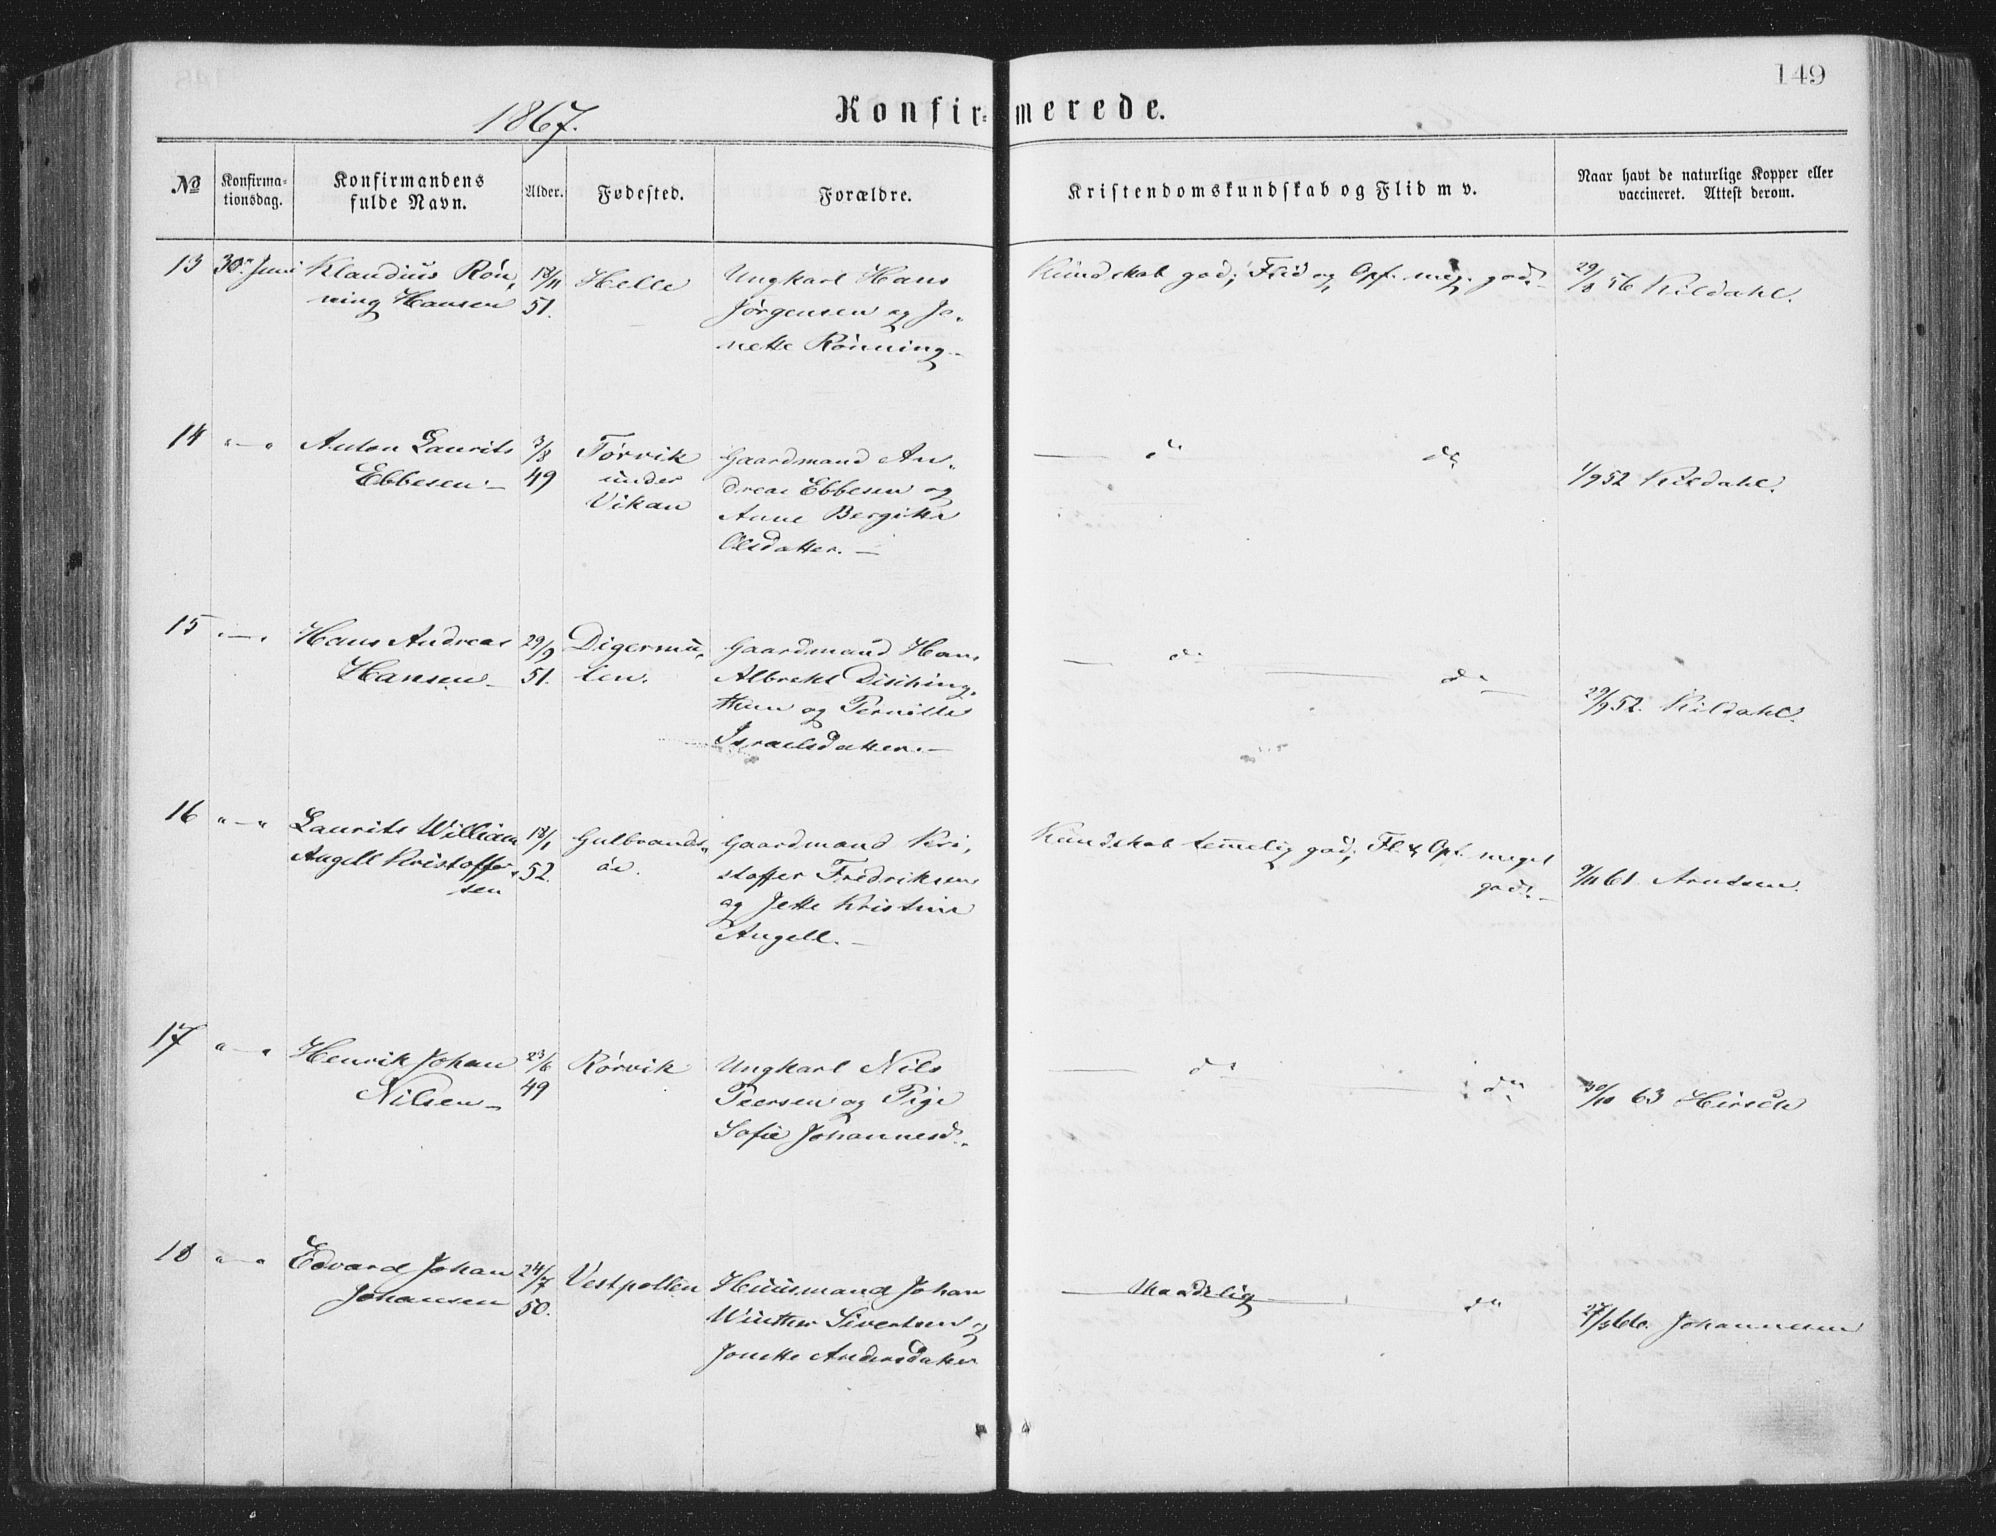 149
1867.
Konfirmerede.
№
Konfirma-
tionsdag.
Konfirmandens
fulde Navn.
Alder.
Fødested.
Forældre.
Kristendomskundskab og Flid m v.
Naar havt de naturlige Kopper eller
vaccineret. Attest derom.
13
30 Juni
Klaudius Røn-
ning Hansen
18/11
51.
Helle
Ungkarl Hans
Jørgensen og Jo-
nette Rønning
Kundskab god; Flid og Opf. meg. god.
29/8 56 Kildahl.
14
"—"
Anton Laurits
Ebbesen
3/8
49
Tørvik
under
Vikan
Gaardmand An-
dreas Ebbesen og
Anne Bergitte
Olsdatter.—
do do
1/9 52 Kildahl.
15
"—"
Hans Andreas
Hansen
29/9
51.
Digermu-
len.
Gaardmand Hans
Albrekt
og Pernille
Israelsdatter.—
do do
29/9 52. Kildahl.
16
"—"
Laurits William
Angell Kristoffer-
sen
18/1
52.
Gulbrands-
øi.
Gaardmand Kri-
stoffer Fredriksen
og Jette Kristine
Angell.—
Kundskab temmelig god; Fl. & Opf. meget
god.
9/11 61 Arntsen.
17
"—"
Henrik Johan
Nilsen
23/6
49
Rørvik
Ungkarl Nils
Peersen og Pige
Sofie Johannesd.
do do
30/10 63 Hirsch
18
"—"
Edvard Johan
Johansen
24/7
50.
Vestpollen
Huusmand Johan
Winther Sivertsen og
Jonette Andersdatter
Maadelig do
27/5 66. Johannesen